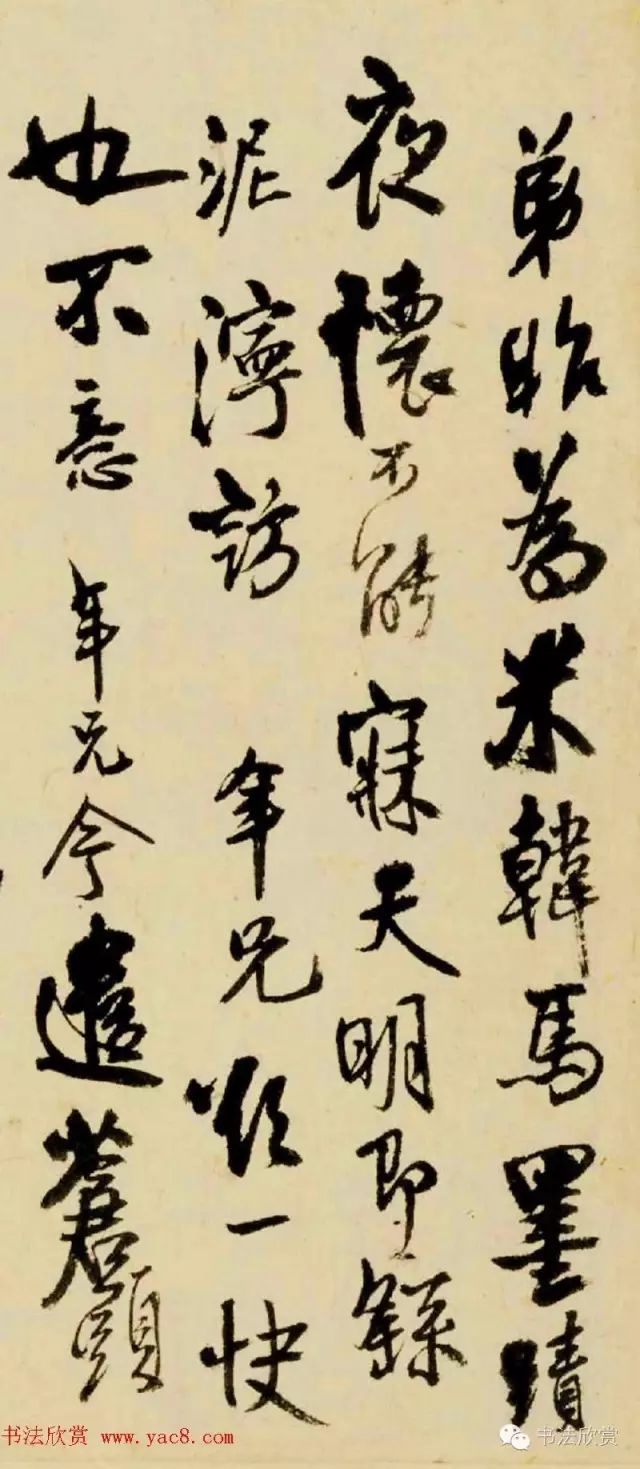 弟為米韓馬墨蹟
夜懷不能寐天明即繇
泥濘訪 年兄一快
也不意 年兄今遣蒼頭
书法欣赏 www.yac8.com
书法欣赏